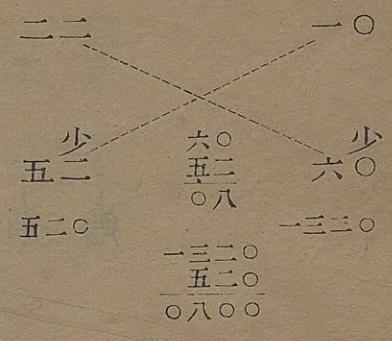 二二 一〇
少 少
五二 六〇 六〇
五二
〇八
五二〇 一三二〇
一三二〇
五二〇
〇八〇〇